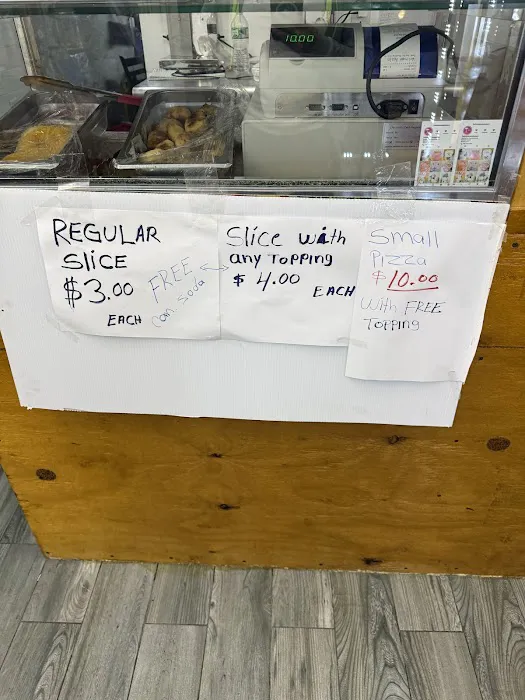 10.00
REGULAR
SLICE
$3.00
EACH
FREE
can soda
Slice with
any TOPPING
$ 4.00
EACH
Small
Pizza
$10.00
With FREE
TOPPING